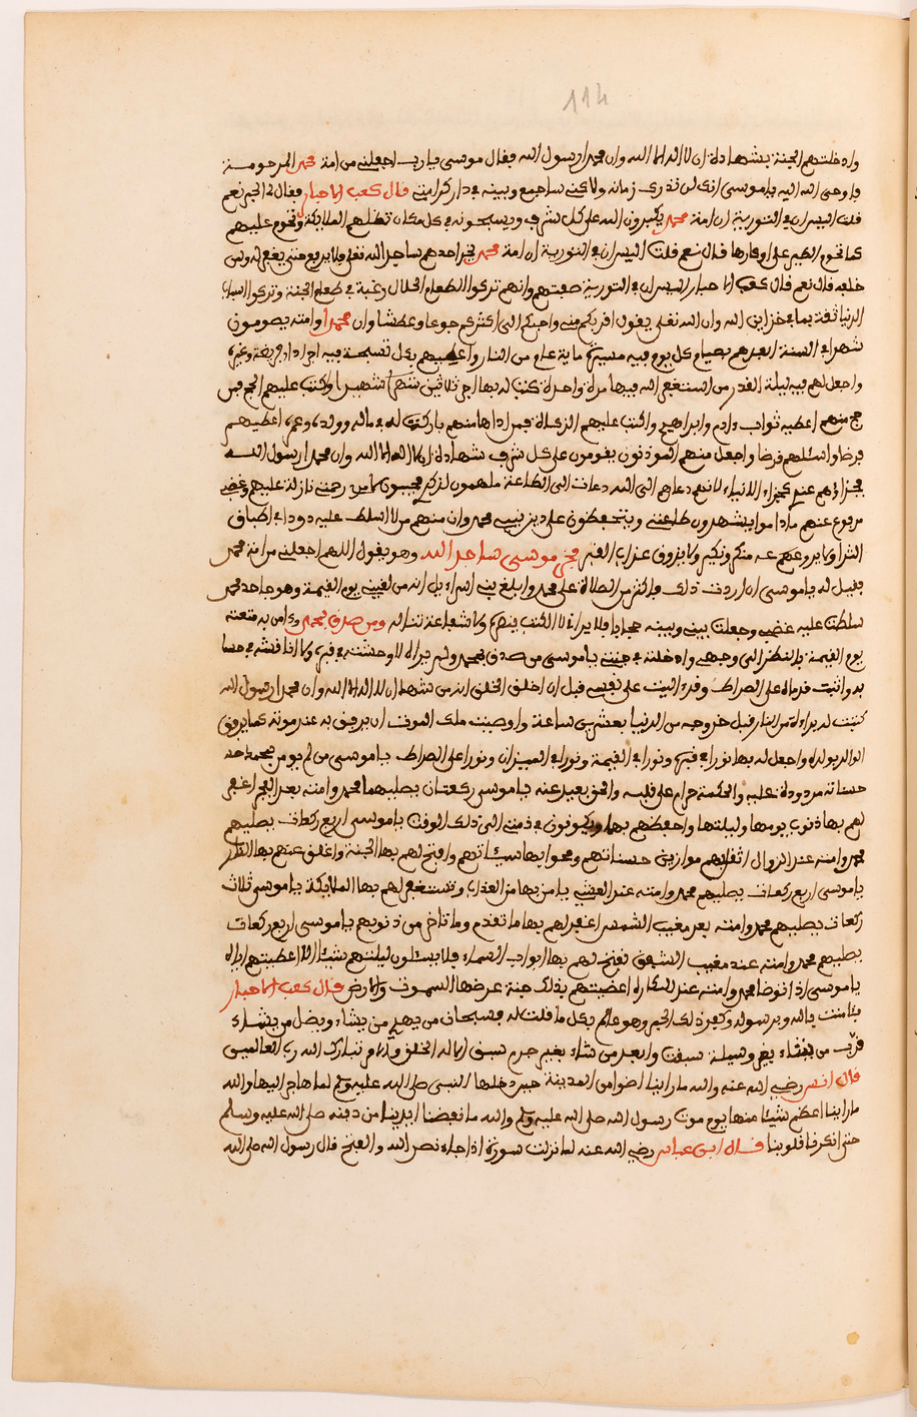 114
وادخلتهم الجنة بشهادة ان لا اله الا الله وان محمدا رسول الله فقال موسى يا رب اجعلني من امة محمد المرحومة
فاوحى الله اليه يا موسى انك لن تدرك زمانه ولاكني ساجمع وبينه في دار كرامتي قال كعب الاحبار فقال له الحبر نعم
قلت اليس ان في التورية ان امة محمد يكبرون الله على كل شرف ويسبحونه في كل مكان تظلهم الملايكة وتحوم عليهم
كما تحوم الطير على اوكارها قال نعم قلت اليس ان في التورية ان امة محمد يخر احدهم ساجدا لله تعلى ولا يرفع حتى يغفر له ولمن
خلفه قال نعم قال كعب الاحبار اليس ان في التورية صفتهم وانهم تركوا الطعام الحلال رغبة في طعام الجنة وتركوا
الدنيا ثقة بما في خزاين الله وان الله تعلى يقول اقربكم مني واحبكم الي اكثركم جوعا وعطشا وان محمدا وامته يصومون
شهرا في السنة ابعدهم بصيام كل يوم فيه مسيرة ماية عام من النار واعطيهم بكل تسبحة فيه اجر
واجعل لهم فيه ليلة القدر من استغفر الله فيها مرة واحدة كتب له بها اجر ثلاثين شهرا واكتب عليهم الحج فمن
حج منهم اعطيه ثواب ءادم وابراهيم واكتب عليهم الزكاة فمن اداها منهم باركت له في ماله وولده وعمره اعطيهم
فرضا واسئلهم فرضا واجعل منهم المؤذنون يقومون على كل شرف شهادة ان لا اله الا الله وان محمدا رسول الله
فجزاؤهم عندي كجزاء الانبياء لانهم دعاهم الى الله دعات الى الطاعة ملهمون لذكري رحمتي نازلة عليهم وغضبي
مرفوع عنهم ما داموا يشهدون طاعتي ويتحفظون على دين نبيي محمد وان منهم من لا اسلط عليه دودا في اطباق
الثرا ولا يروعهم منكر ونكير ولا يذوق عذاب القبر فخر موسى ساجدا لله وهو يقول اللهم اجعلني من امة محمد
فقيل له يا موسى ان اردت ذلك فاكثر من الصلاة على محمد وابلغ بني اسراءيل انه من لقيني يوم القيمة وهو جاحد محمد
سلطت عليه غضبي وجعلت بيني وبينه حجابا فلا يراني لا الكتب ينفعه ولا شفاعة تناله ومن صدق بمحمد وءامن به متعته
يوم القيمة بالنظر الى وجهي وادخلته في جنتي يا موسى من صدق بمحمد ولم يراه لا وحشته في قبره ولا اناقشه في حسا
به واثبت قدماه على الصراط وقد ءاليت على نفسي قبل ان اخلق الخلق انه من شهد ان لا اله الا الله وان محمدا رسول الله
كتبت له براءة من النار قبل خروجه من الدنيا بعشرين ساعة واوصيت ملك الموت ان يرفق به عند موته كما يرفق
الوالد بولده واجعل له بها نورا في قبره ونورا في القيمة ونورا في الميزان ونورا على الصراط يا موسى من لم يومن بمحمد احمد
حسناته مردودة عليه والحكمة حرام على قلبه والحق بعيد عنه يا موسى ركعتان يصليهما محمد وامته بعد الفجر اغفر
لهم بها ذنوب يومها وليلتها واحفظهم بها ويكونون في ذمتي الى ذلك الوقت يا موسى اربع ركعات يصليهم
محمد وامته عند الزوال اثقل بهم موازين حسناتهم وامحوا بها سيئاتهم وافتح لهم بها الجنة واغلق عنهم بها النار
يا موسى اربع ركعات يصليهم محمد وامته عند العشي يامن بها من العذاب وتستغفر لهم بها الملايكة يا موسى ثلاث
ركعات يصليهم محمد وامته بعد مغيب الشمس اغفر لهم بها ما تقدم وما تاخر من ذنوبهم يا موسى اربع ركعات
يصليهم محمد وامته عند مغيب الشفق تفتح لهم بها ابواب السماء فلا يسئلون ليلتهم شيئا الا اعطيتهم اياه
يا موسى اذا توضا محمد وامته عند المكاره اعطيتهم بذلك جنة عرضها السموت والارض قال كعب الاحبار
ءامنت بالله وبرسوله وكفر ذلك الحبر وهو عالم بكل ما قلت له فسبحان من يهدي من يشاء ويضل من يشاء
قرب من يشاء بغير وسيلة سبقت وابعد من شاء بغير جرم سبق الا له الخلق والامر تبارك الله رب العالمين
قال انس رضي الله عنه والله ما راينا اضوا من المدينة حين دخلها النبي صلى الله عليه وسلم لما هاجر اليها والله
ما راينا اعظم شيئا منها يوم موت رسول الله صلى الله عليه وسلم والله ما نفضنا ايدينا من دفنه صلى الله عليه وسلم
حتى انكرنا قلوبنا قال ابن عباس رضي الله عنه لما نزلت سورة اذا جاء نصر الله والفتح قال رسول الله صلى الله